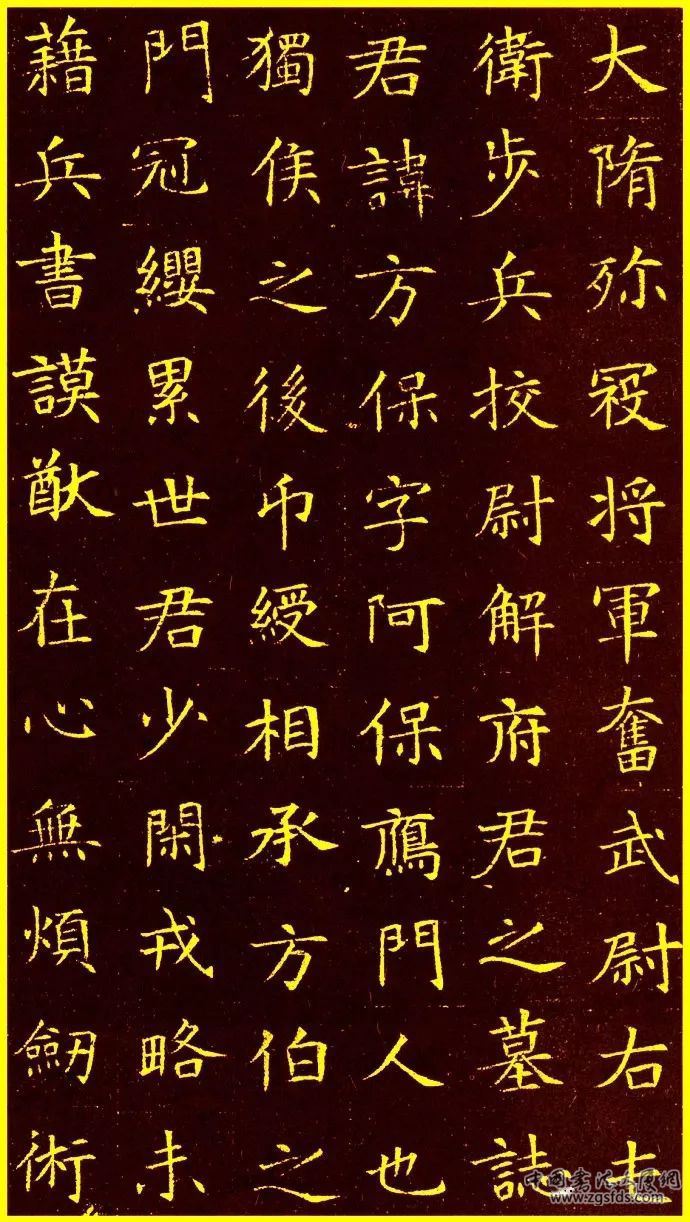 大隋殄寇将軍奮武尉右
衛步兵挍尉解府君之墓誌
君諱方保字阿保鴈門人也
獨侯之後巾綬相承方伯之
門冠纓累世君少閑戎略未
藉兵書謨猷在心無煩劒術
中國書法大厦網
www.zgsfds.com